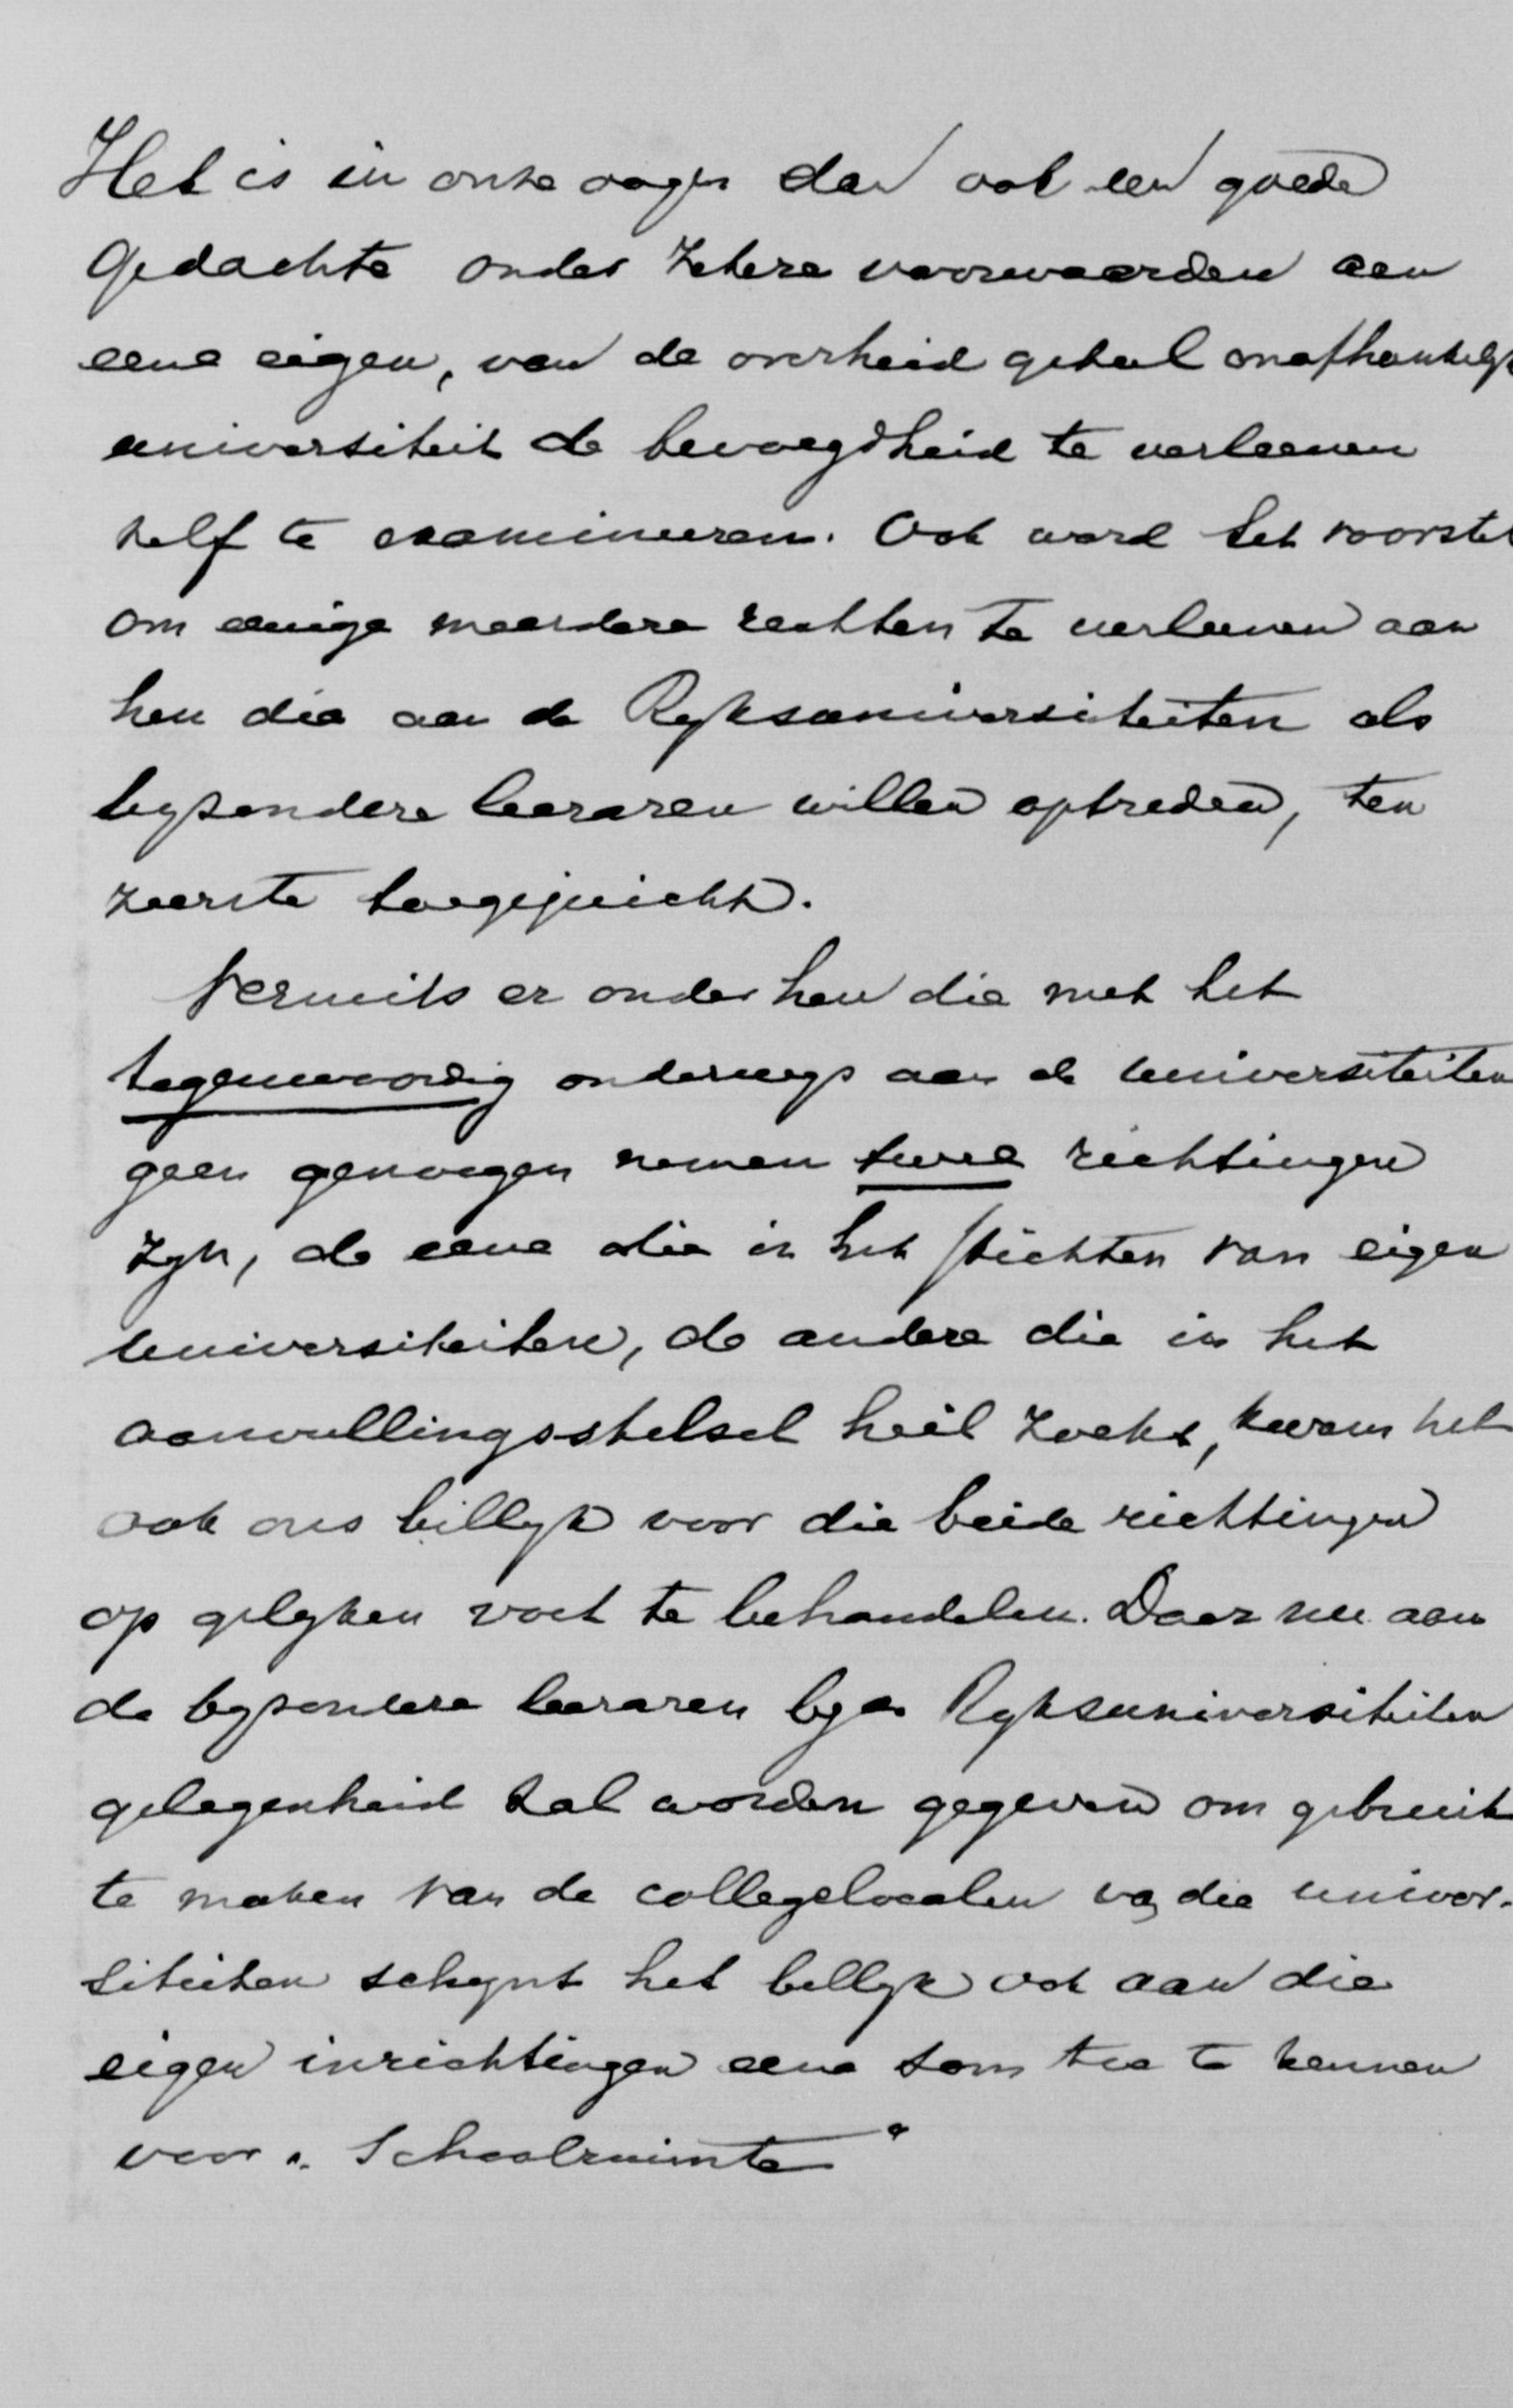 Het is in onze oogen dan ook een goede
gedachte onder zekere voorwaarden aan
eene eigen, van de overheid geheel onafhankelyk
universiteit de bevoegdheid te verleenen
zelf te examineeren. Ook werd het voorstel
om eenige meerdere rechten te verleenen aan
hen die aan de Ryksuniversiteiten als
byzondere leeraren willen optreden, ten
zeerste toegejuicht.
Vermits er onder hen die met het
tegenwoordig onderwys aan de universiteiten
geen genoegen nemen twee richtingen
zyn, de eene die in het stichten van eigen
universiteiten, de andere die in het
aanvullingsstelsel heil zoekt, kwam het
ook ons billyk voor die beide richtingen
op gelyken voet te behandelen. Daar nu aan
de byzondere leeraren by de Ryksuniversiteiten
gelegenheid zal worden gegeven om gebruik
te maken van de collegelocalen van die univer-
siteiten schynt het billyk ook aan die
eigen inrichtingen eene som toe te kennen
voor "Schoolruimte"